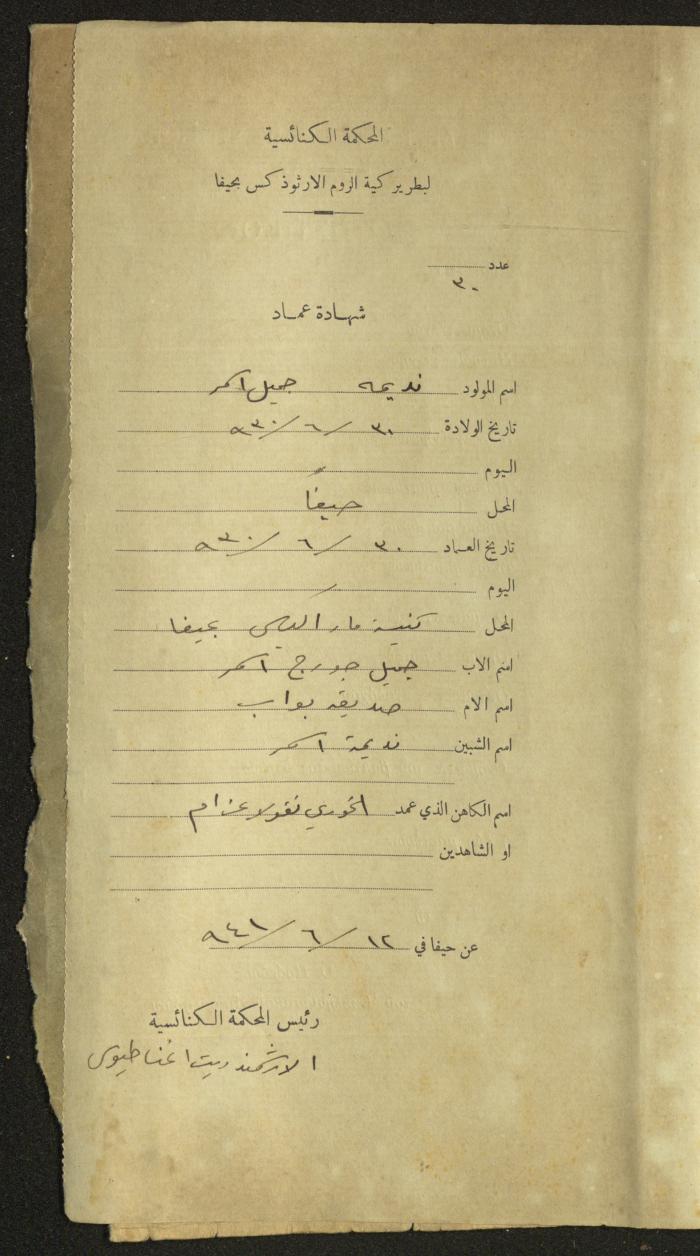 المحكمة الكنائسية
لبطريركية الروم الارثوذكس بحيفا
عدد
٣٠
شهادة عماد
اسم المولود نديمه جميل اسمر
تاريخ الولادة ٣٠ / ٦ / ٩٣٠
اليوم
المحل حيفا
تاريخ العماد ٣٠ / ٦ / ٩٣٠
اليوم
المحل كنيسة مار الياس بحيفا
اسم الاب جميل جورج اسمر
اسم الام صديقه بواب
اسم الشبين نديمة اسمر
اسم الكاهن الذي عمد الخوري نقولا عزام
او الشاهدين
عن حيفا في ١٢ / ٦ / ٩٤١
رئيس المحكمة الكنائسية
الارشمندريت اغناطيوس